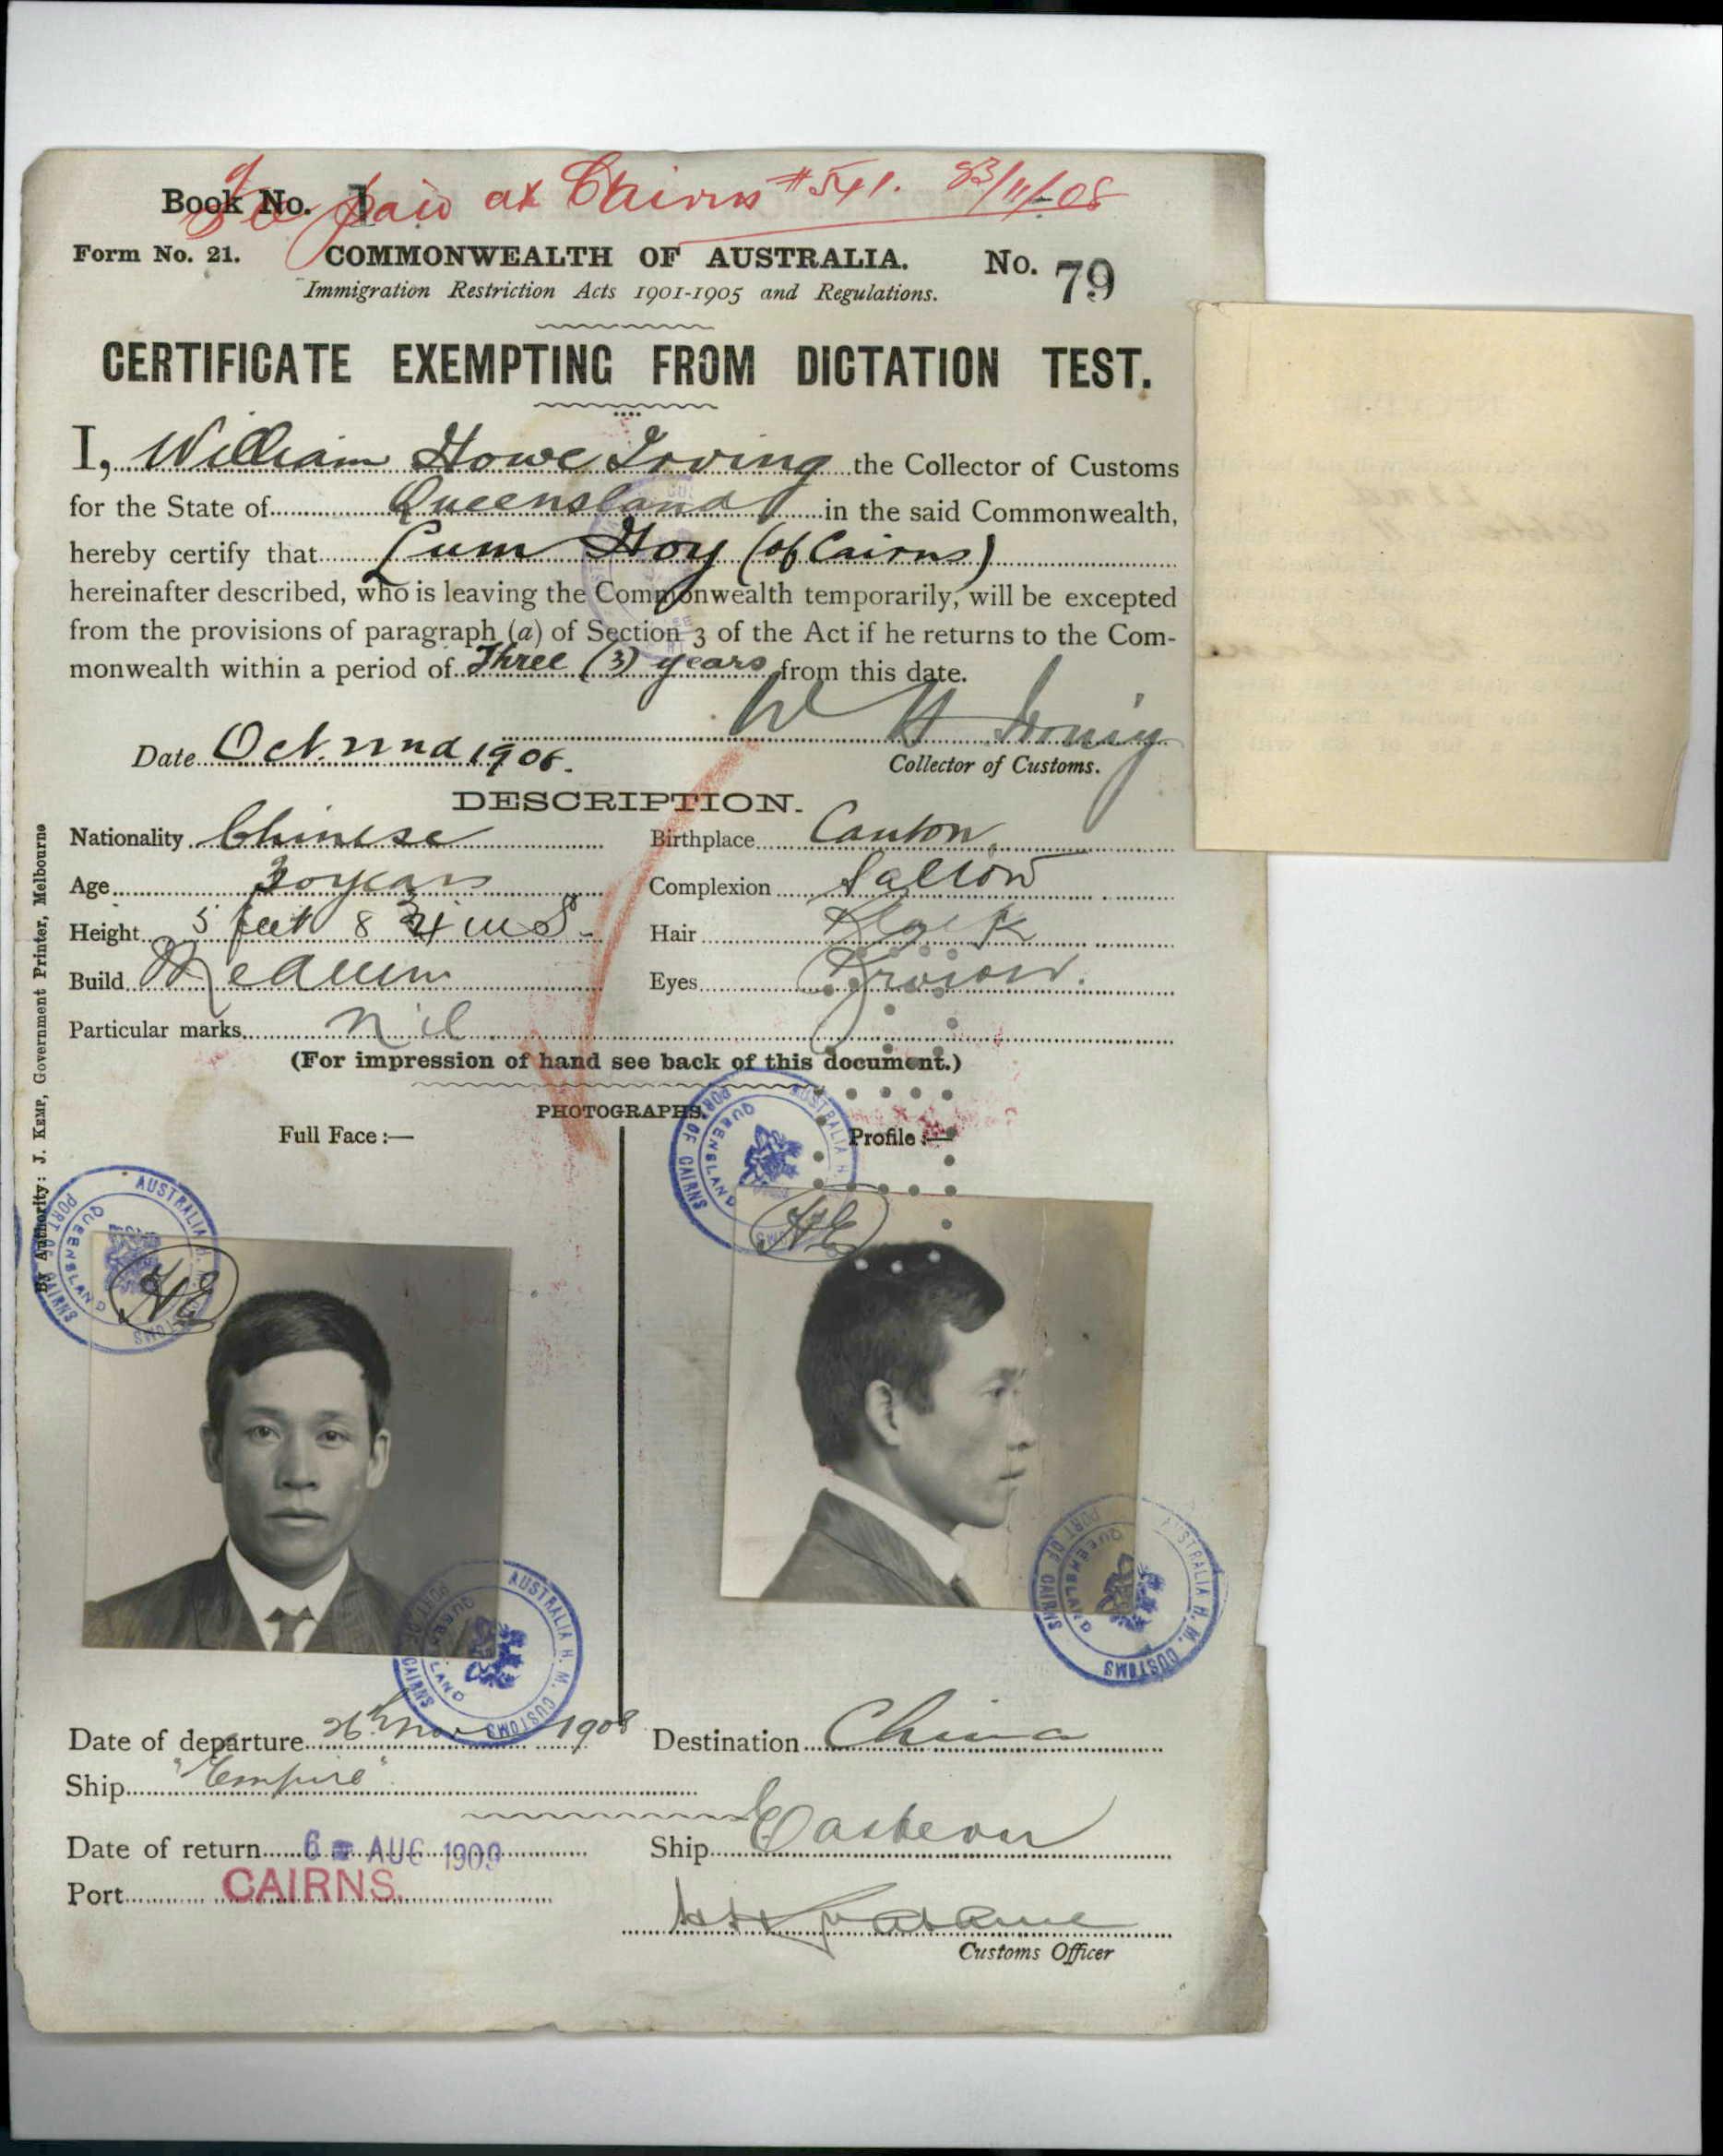 Book No. 1
paid at Cairns #541. 23/11/08
Form No. 21. COMMONWEALTH OF AUSTRALIA. No. 79
Immigration Restriction Acts 1901-1905 and Regulations.
CERTIFICATE EXEMPTING FROM DICTATION TEST.
I, William Howe Irving the Collector of Customs
for the State of Queensland in the said Commonwealth,
hereby certify that Lum Hoy (of Cairns)
hereinafter described, who is leaving the Commonwealth temporarily, will be excepted
from the provisions of paragraph (a) of Section 3 of the Act if he returns to the Com-
monwealth within a period of Three (3) years from this date.
W H Irving
Date Oct. 22nd 1908.
Collector of Customs.
DESCRIPTION.
Nationality Chinese Birthplace Canton.
Age 30 years Complexion Sallow
Height 5 feet 8 3/4 ins Hair Black
Build Medium Eyes Brown.
Particular marks nil
(For impression of hand see back of this document.)
PHOTOGRAPHS.
Full Face:— Profile:—
AUSTRALIA H. M. CUSTOMS PORT OF CAIRNS QUEENSLAND
AUSTRALIA H. M. CUSTOMS PORT OF CAIRNS QUEENSLAND
AUSTRALIA H. M. CUSTOMS PORT OF CAIRNS QUEENSLAND
AUSTRALIA H. M. CUSTOMS PORT OF CAIRNS QUEENSLAND
Date of departure 26th Nov 1908 Destination China
Ship "Empire"
Date of return 6 AUG 1909 Ship Eastern
Port CAIRNS.
Customs Officer
By Authority: J. KEMP, Government Printer, Melbourne